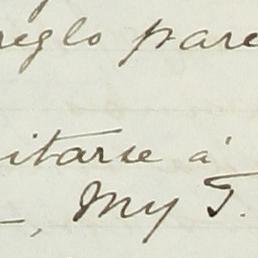 reglo pare
itarse á
, My T.